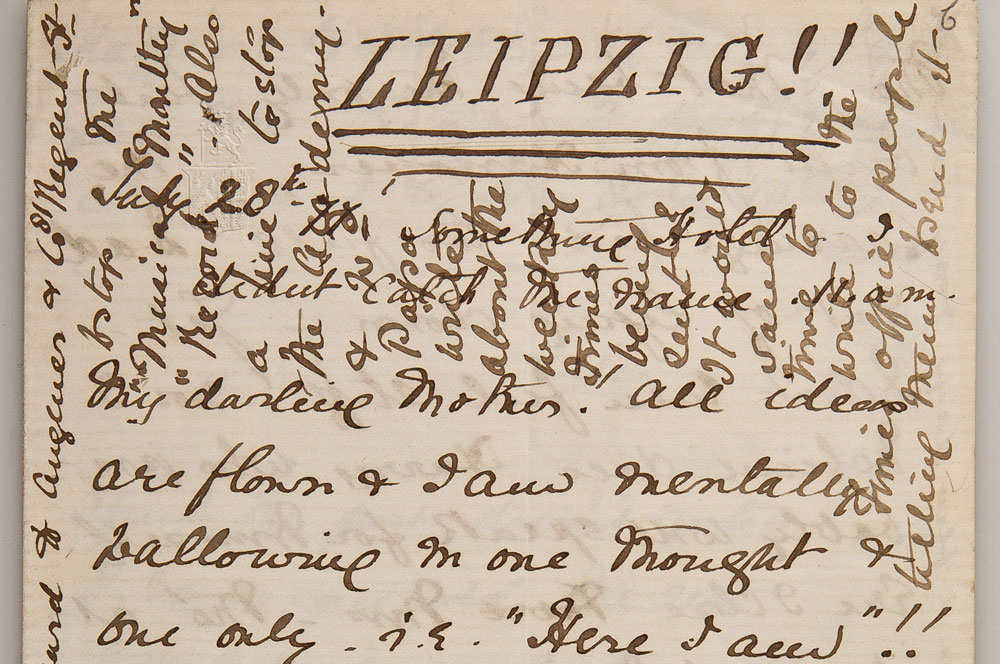 LEIPZIG!!
July 28th
Something Hotel. I
didnt catch the name. 11.a.m.
My darling Mother. All ideas
are flown & I am mentally
wallowing in one thought &
one only. i.e. "Here I am"!!
& Augener & Co Regent St.
to stop the
"Musical Monthly
Record" - Also
a line to stop
the Academy.
&
Papa
write
about the
weekly
Times
being
sent?
It would
save
time to
write to the
Times office people
telling them to send it -